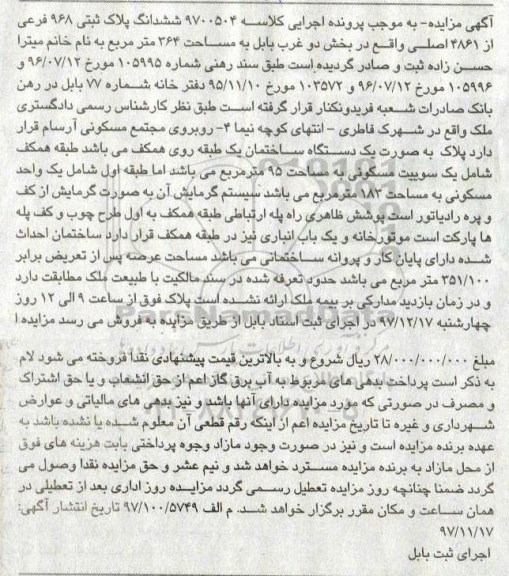 آگهی مزایده- به موجب پرونده اجرایی کلاسه ۹۷۰۰۵۰۴ ششدانگ پلاک ثبتی ۹۶۸ فرعی
از ۴۸۶۱ اصلی واقع در بخش دو غرب بابل به مساحت ۳۶۴ متر مربع به نام خانم میترا
حسن زاده ثبت و صادر گردیده است طبق سند رهنی شماره ۱۰۵۹۹۵ مورخ ۹۶/۰۷/۱۲ و
۱۰۵۹۹۶ مورخ ۹۶/۰۷/۱۲ و ۱۰۳۵۷۲ مورخ ۹۵/۱۱/۱۰ دفتر خانه شماره ۷۷ بابل در رهن
بانک صادرات شعبه فریدونکنار قرار گرفته است طبق نظر کارشناس رسمی دادگستری
ملک واقع در شهرک فاطری – انتهای کوچه نیما ۴- روبروی مجتمع مسکونی آرسام قرار
دارد پلاک به صورت یک دستگاه ساختمان یک طبقه روی همکف می باشد طبقه همکف
شامل یک سوییت مسکونی به مساحت ۹۵ مترمربع می باشد اما طبقه اول شامل یک واحد
مسکونی به مساحت ۱۸۲ مترمربع می باشد سیستم گرمایش آن به صورت گرمایش از کف
و پره رادیاتور است پوشش ظاهری راه پله ارتباطی طبقه همکف به اول طرح چوب و کف پله
ها پارکت است موتورخانه و یک باب انباری نیز در طبقه همکف قرار دارد ساختمان احداث
شده دارای پایان کار و پروانه ساختمانی می باشد مساحت عرصه پس از تعریض برابر
۳۵۱/۱۰۰ متر مربع می باشد حدود تعرفه شده در سند مالکیت با طبیعت ملک مطابقت دارد
و در زمان بازدید مدارکی بر بیمه ملک ارائه نشده است پلاک فوق از ساعت ۹ الی ۱۲ روز
چهارشنبه ۹۷/۱۲/۱۷ در اجرای ثبت اسناد بابل از طریق مزایده به فروش می رسد مزایده ا
مبلغ ۲۸/۰۰۰/۰۰۰/۰۰۰ ریال شروع و به بالاترین قیمت پیشنهادی نقدا فروخته می شود لام
به ذکر است پرداخت بدهی های مربوط به آب برق گاز اعم از حق انشعاب و یا حق اشتراک
و مصرف در صورتی که مورد مزایده دارای آنها باشد و نیز بدهی های مالیاتی و عوارض
شهرداری و غیره تا تاریخ مزایده اعم از اینکه رقم قطعی آن معلوم شده یا نشده باشد به
عهده برنده مزایده است و نیز در صورت وجود مازاد وجوه پرداختی بابت هزینه های فوق
از محل مازاد به برنده مزایده مسترد خواهد شد و نیم عشر و حق مزایده نقدا وصول می
گردد ضمنا چنانچه روز مزایده تعطیل رسمی گردد مزایده روز اداری بعد از تعطیلی در
همان ساعت و مکان مقرر برگزار خواهد شد. م الف ۹۷/۱۰۰/۵۷۴۹ تاریخ انتشار آگهی:
۹۷/۱۱/۱۷
اجرای ثبت بابل
ParsNamadData